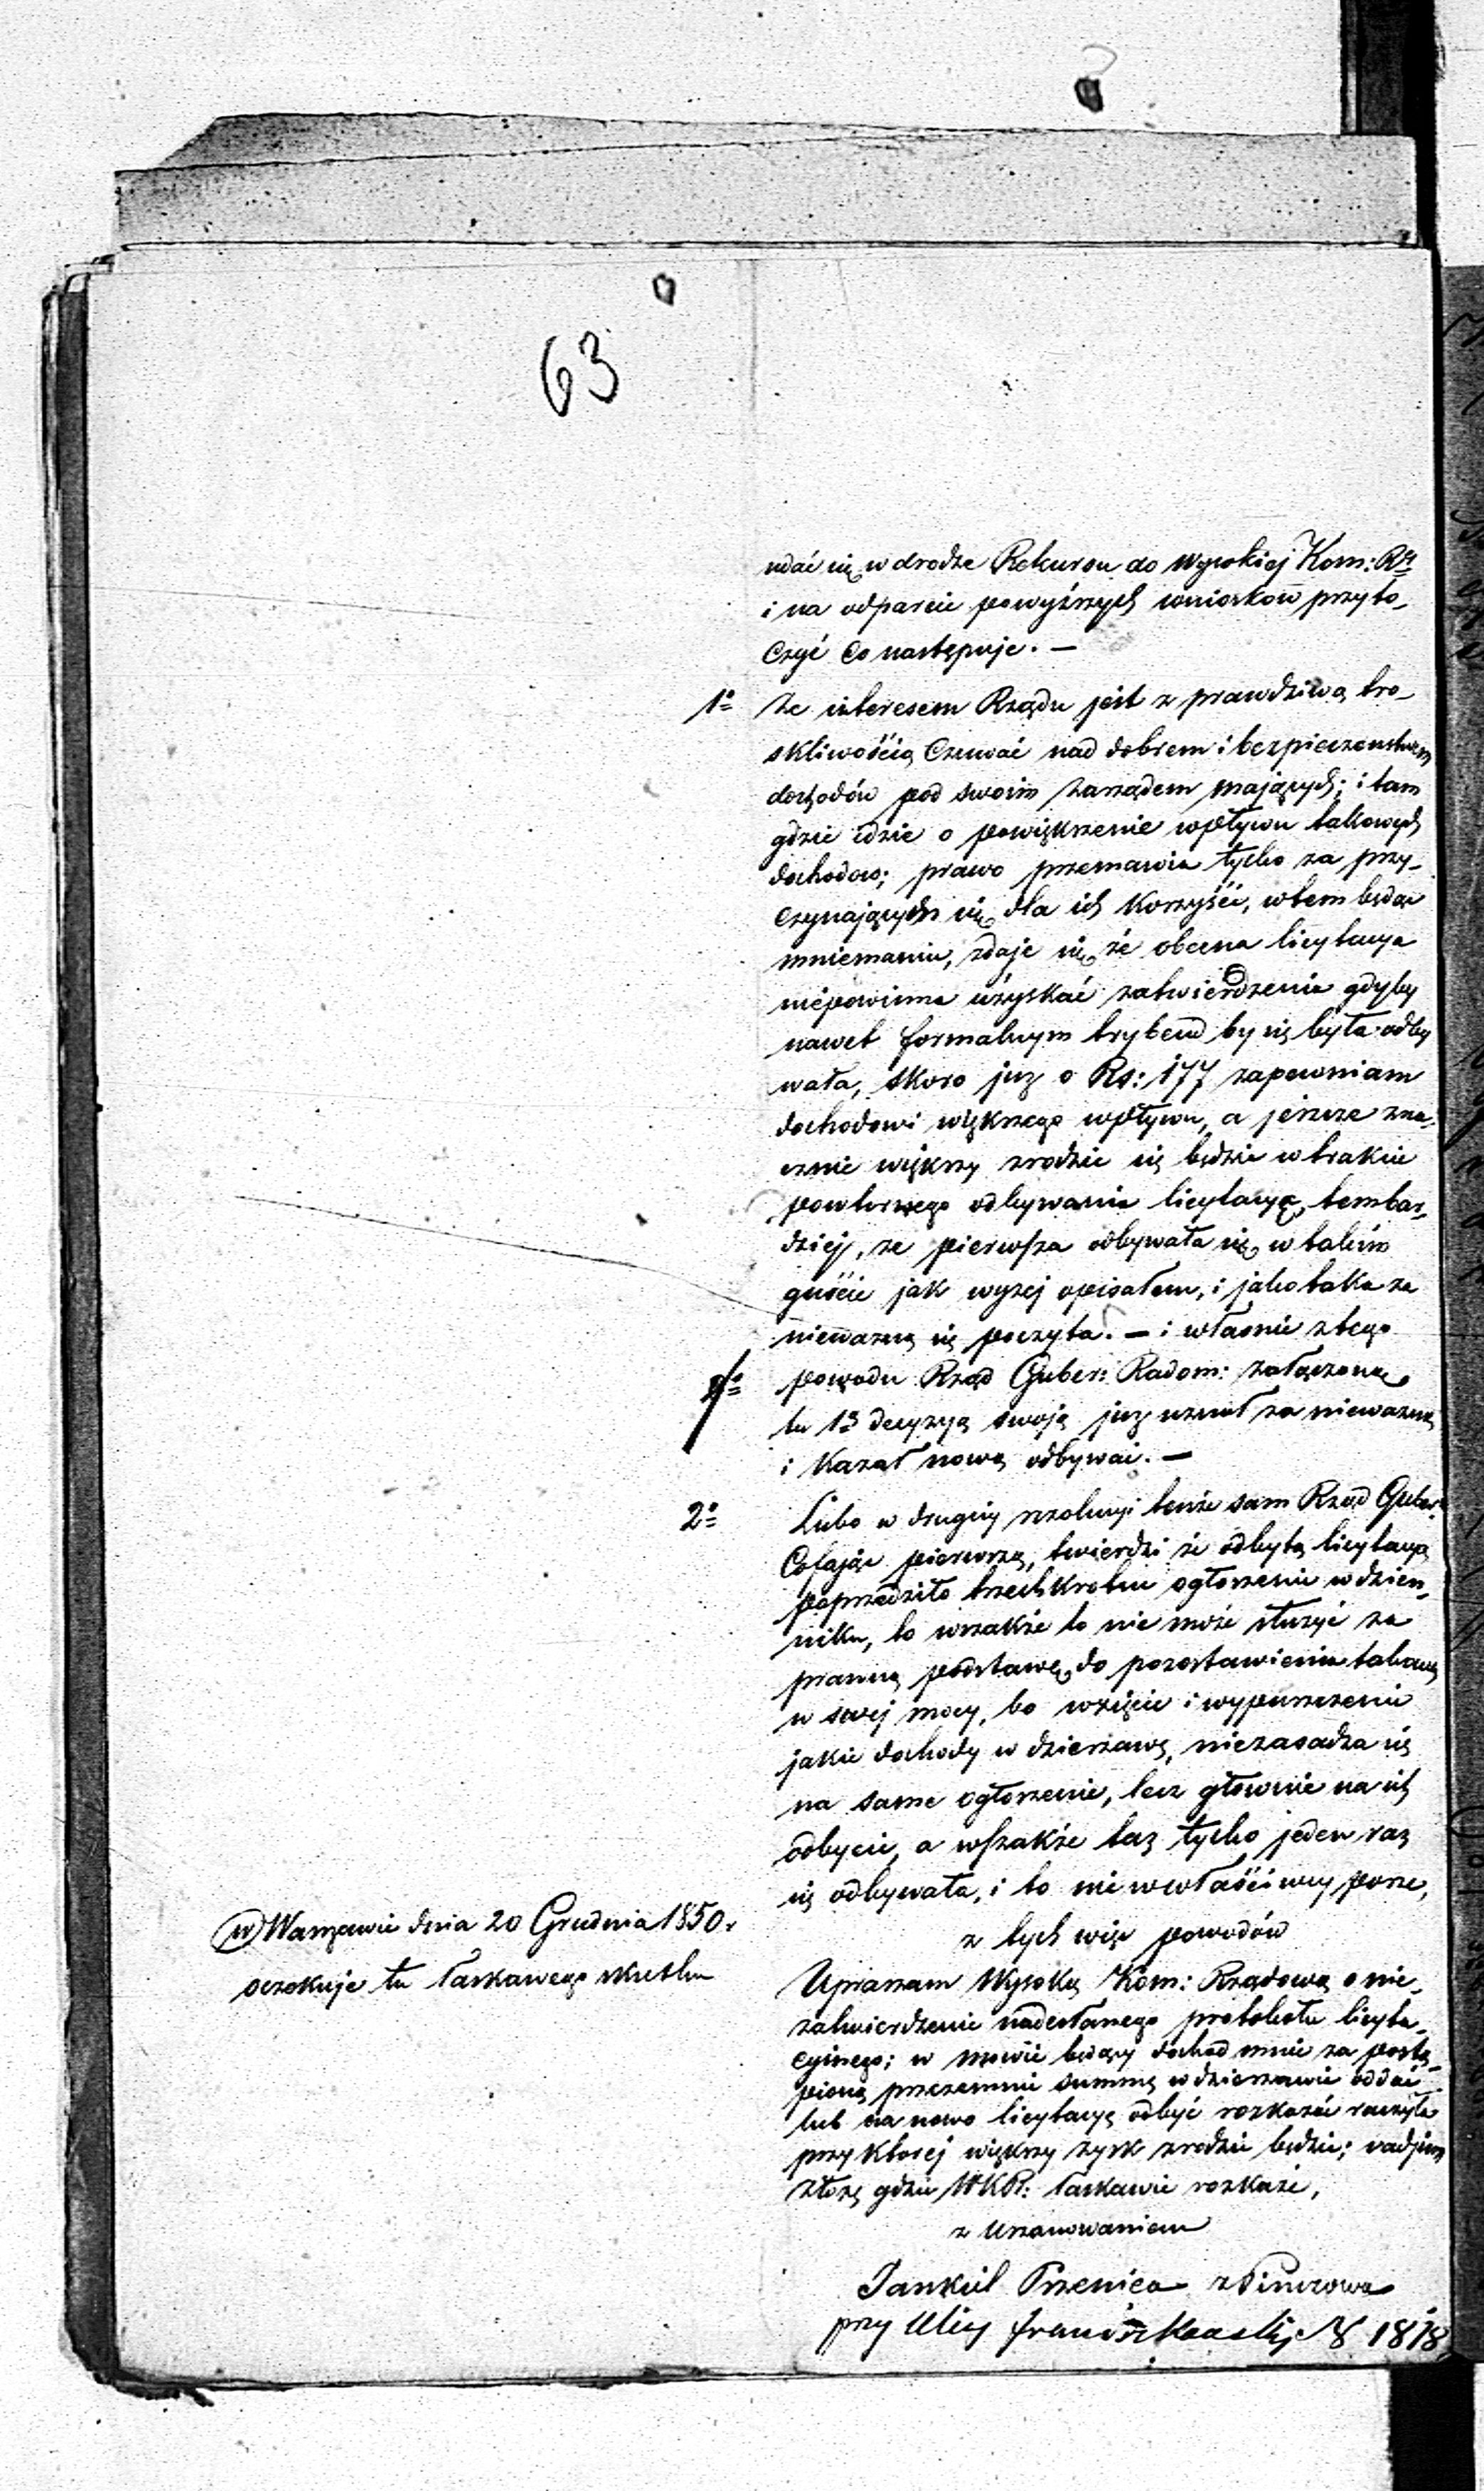 63
udać się w drodze Rekursu do Wysokiej Kom: Rej
i na odparcie powyższych wnioskow przyto-
czyć co następuje. —
1° Że interesem Rządu jest z prawdziwą tro-
skliwością Czuwać nad dobrem i bezpieczenstwem
dochodów pod swoim zarządem mających; i tam
gdzie idzie o powiększenie wpływu takowych
dochodow; prawo przemawia tylko za przy-
czynających się dla ich Korzyści, w tem będąc
mniemaniu, zdaje się że obecna licytacya
niepowinna uzyskać zatwierdzenia gdyby
nawet formalnym trybem by się była odby
wała, skoro juz o Rs: 177 zapewniam
dochodowi większego wpływu, a jeszcze zna-
cznie większy zrodzić się będzie w trakcie
powtornego odbywania licytacyi, tembar-
dziej, ze pierwsza odbywała się w takim
guście jak wyzej opisałem, i jako taka za
nieważną się poczyta. — i własnie z tego
powodu Rząd Guber: Radom: załączoną
tu 13 decyzyą swoją juz uznał za niewazną
i Kazał nową odbywać. —
2° Lubo w drugiej rezolucyi tenże sam Rząd Guber:
Cofając pierwszą, twierdzi że odbytą licytacyą
poprzedziło trzechkrotne ogłoszenie w dzien-
niku, to wszakże to nie może służyć za
prawną podstawę do pozostawienia takowej
w swej mocy, bo wzięcie i wypuszczenie
jakie dochody w dzierzawę, niezasadza się
na same ogłoszenie, lecz głownie na ich
odbycie, a wszakże taz tylko jeden raz
się odbywała, i to nie w właściwey porze,
z tych więc powodów
Upraszam Wysoką Kom: Rządową o nie-
zatwierdzenie nadesłanego protokołu licyta-
cyjnego; w mowie będący dochod mnie za postą-
pioną przezemnie summę w dzierzawie oddać
lub na nowo licytacyę odbyć rozkazać raczyła
przy ktorej większy zysk zrodzić będzie; vadjum
złożę gdzie WKR: łaskawie rozkaże,
z Uszanowaniem
Jankiel Pszenica z Pinczowa
przy Ulicy franciszkanskiej N 1818
w Warszawie dnia 20 Grudnia 1850 r
oczekuje tu łaskawego skutku